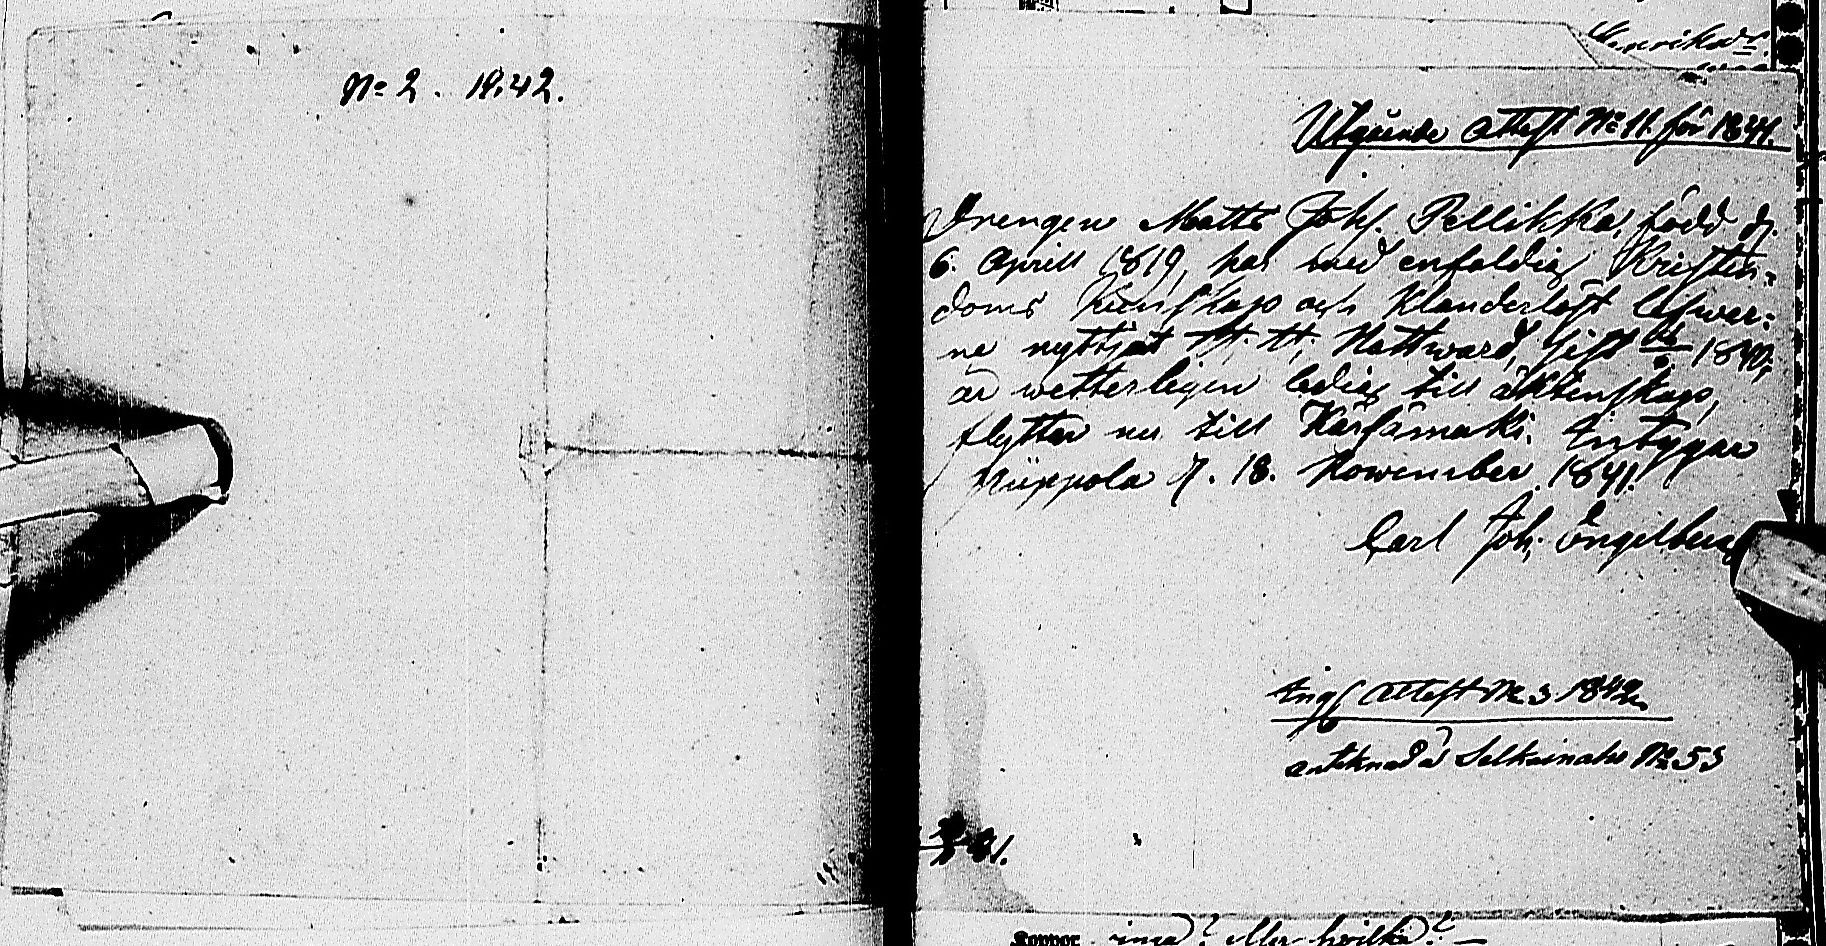 No 2. 1842.
Utgående Attest No 11. för 1841.
Drengen Matts Joh. Pellikka, född d.
6. Aprill 1819, har med enfaldig Kristen-
doms kunskap och klanderlöst lefwer-
ne nyttjat H. H. Nattward, sist 1841,
är wetterligen ledig till äktenskap,
flyttar nu till Kärsämäki. Intygar
Piippola d. 18. Nowember 1841.
Carl Joh. Engelberg
Ingf Attest No 3 1842.
anteknad å Selkäinaho No 53
41.
inea? eller hvilka?